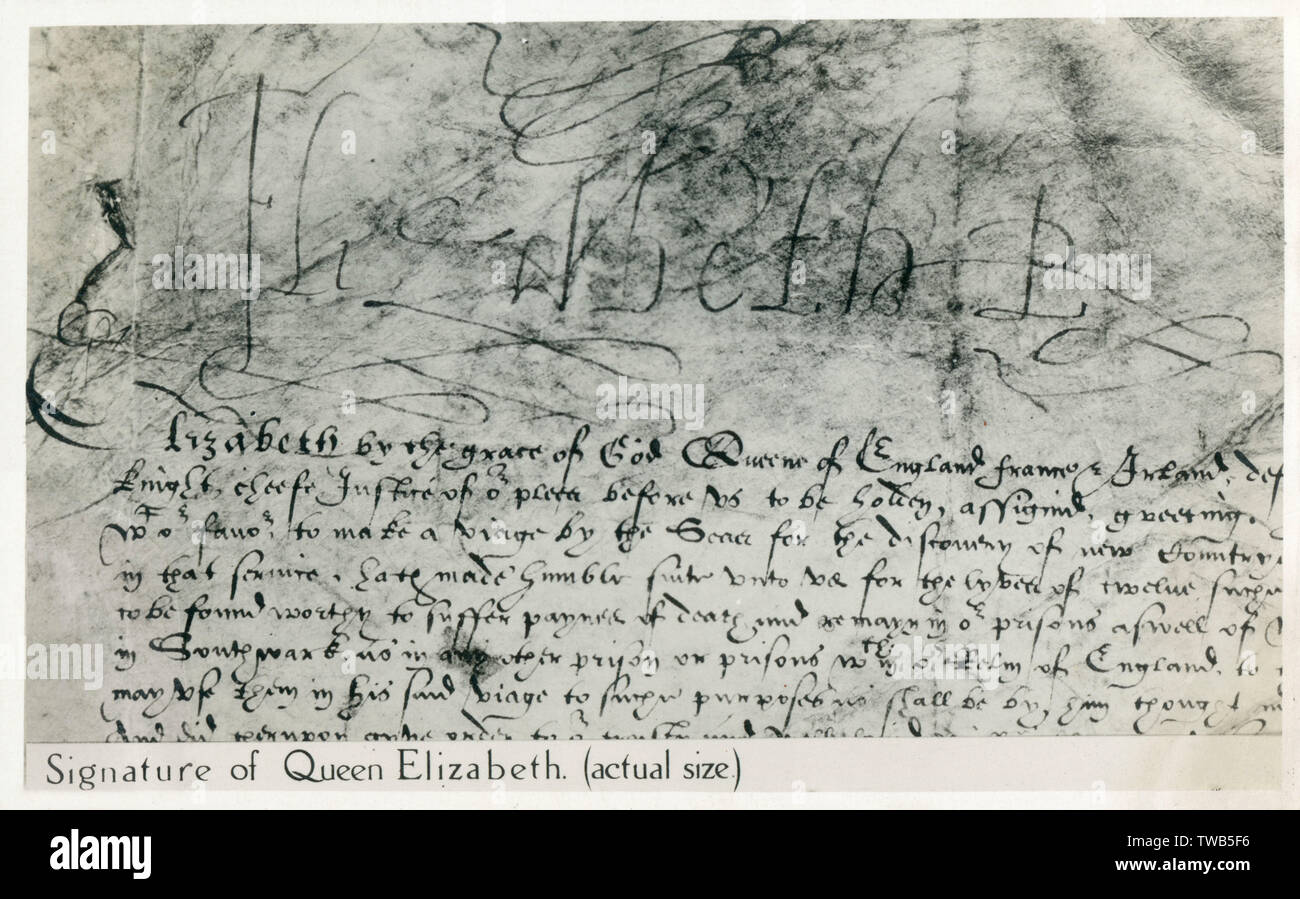 Elizabeth R
Elizabeth by the grace of God Queene of England france & Irland, def
knight, cheefe Justice of or plees before vs to be holden, assigned, greeting.
wt or favor, to make a viage by the Seas for the discovery of new Countrye
in that service, hath made humble sute vnto vs for the lyves of twelve suche
to be found worthy to suffer paynes of death and remayn in or prisons aswell of
in Southwark as in any other prison or prisons wthin or Relm of England, to
may vse them in his said viage to suche purposes as shall be by him thought
And did therupon gyve order to or trusty and
Signature of Queen Elizabeth. (actual size.)
alamy
Image ID: TWB5F6
www.alamy.com